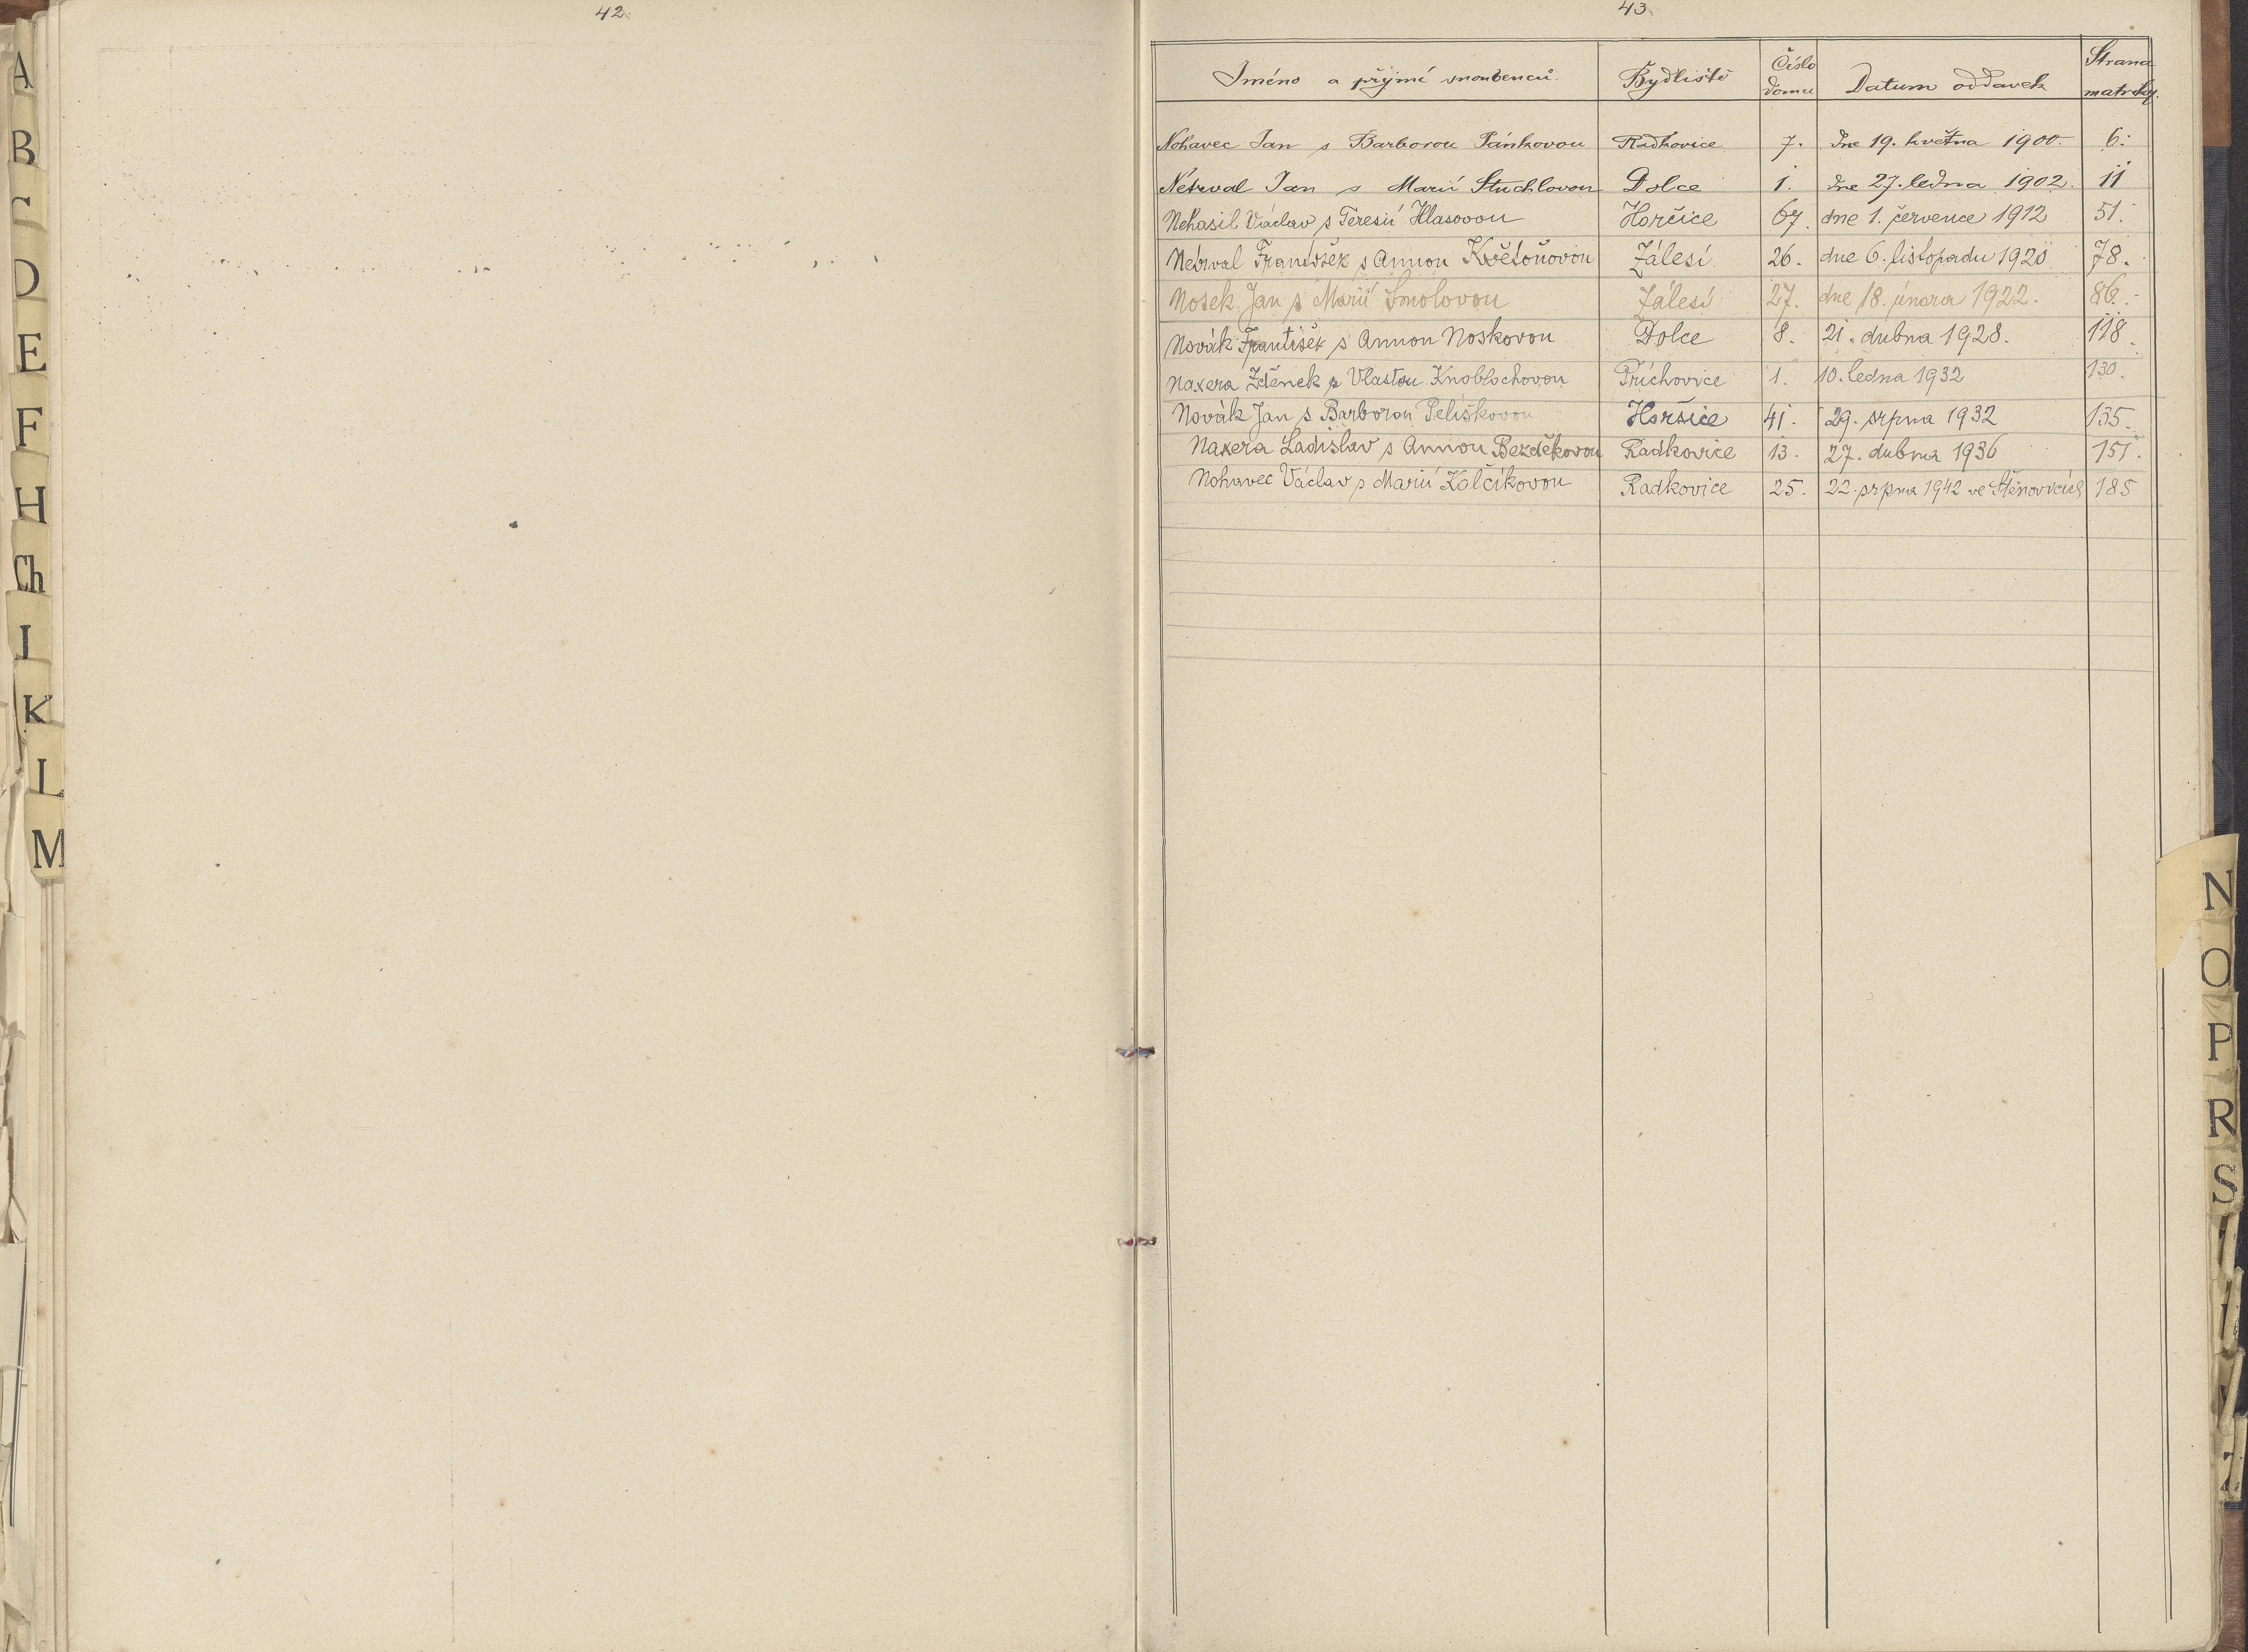 42.
43.
Jméno a příjmí snoubenců. Bydliště Číslo domu Datum oddavek Strana matriky.
Nohavec Jan s Barborou Pánkovou Radkovice 7. dne 19. května 1900. 6.
Netrval Jan s Marií Stuchlovou Dolce 1. dne 27. ledna 1902. 11
Nehasil Václav s Teresií Hlasovou Horčice 67. dne 1. července 1912 51.
Netrval František s Annou Květoňovou Zálesí 26. dne 6. listopadu 1920 78.
Nosek Jan s Marií Smolovou Zálesí 27. dne 18. února 1922. 86.
Novák František s Annou Noskovou Dolce 8. 21. dubna 1928. 118.
Naxera Zděnek s Vlastou Knoblochovou Příchovice 1. 10. ledna 1932 130.
Novák Jan s Barborou Pelíškovou Horšice 41. 29. srpna 1932 135.
Naxera Ladislav s Annou Bezděkovou Radkovice 13. 27. dubna 1936 151.
Nohavec Václav s Marií Kalčíkovou Radkovice 25. 22. srpna 1942 ve Štěnovicích 185
A
B
D
E
F
H
Ch
I
K
L
M
N
O
P
R
S